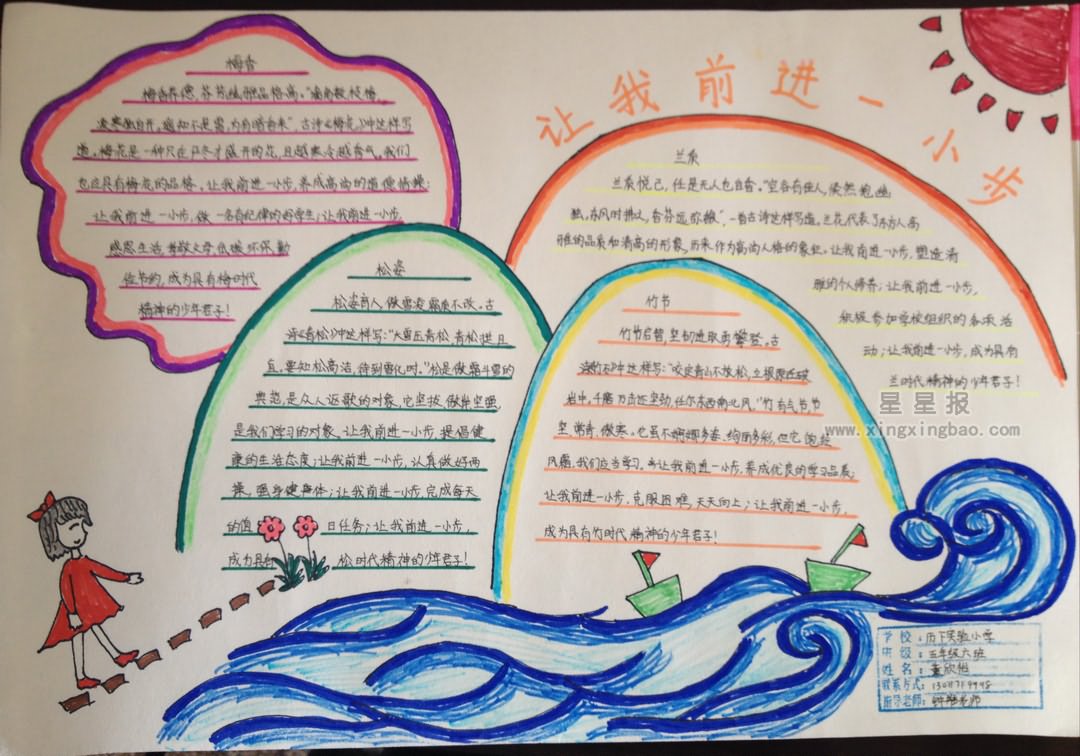 让我前进一小步
梅香
梅香养德，芬芳线雅品格高。"墙角数枝梅，
凌寒独自开。遥知不是雪，为有暗香来"，古诗《梅花》中这样写
道。梅花是一种只在严冬才盛开的花，且越寒冷越香气。我们
也应具有梅花的品格。让我前进一小步，养成高尚的道德情操；
让我前进一小步，做一名有纪律的好学生；让我前进一小步，
感恩生活，孝敬父母，低碳环保，勤
俭节约，成为具有梅时代
精神的少年君子！
松姿
松姿育人，傲雪凌霜质不改。古
诗《青松》中这样写："大雪压青松，青松挺且
直，要知松高洁，待到雪化时。"松是傲霜斗雪的
典范，是众人讴歌的对象，它坚拔、傲岸、坚强，
是我们学习的对象。让我前进一小步，提倡健
康的生活态度；让我前进一小步，认真做好两
操，强身健身体；让我前进一小步，完成每天
的值日任务；让我前进一小步，
成为具有松时代精神的少年君子！
兰质
兰质悦己，任是无人也自香。"空谷有佳人，倏然抱幽
独。东风时拂之，香芬远弥馥"，一首古诗这样写道。兰花代表了东方人高
雅的品质和清高的形象，历来作为高尚人格的象征。让我前进一小步，塑造清
雅的个人修养；让我前进一小步，
积极参加学校组织的各项活
动；让我前进一小步，成为具有
兰时代精神的少年君子！
竹节
竹节启智，坚韧进取勇攀登。古
诗《竹石》中这样写："咬定青山不放松，立根原在破
岩中。千磨万击还坚劲，任尔东西南北风。"竹有气节，节
坚、常青、傲寒。它虽不婀娜多姿、绚丽多彩，但它饱经
风霜，我们应当学习。让我前进一小步，养成优良的学习品质；
让我前进一小步，克服困难，天天向上；让我前进一小步，
成为具有竹时代精神的少年君子！
星星报
www.xingxingbao.com
学校：历下实验小学
班级：五年级六班
姓名：董欣
联系方式：
指导老师：老师